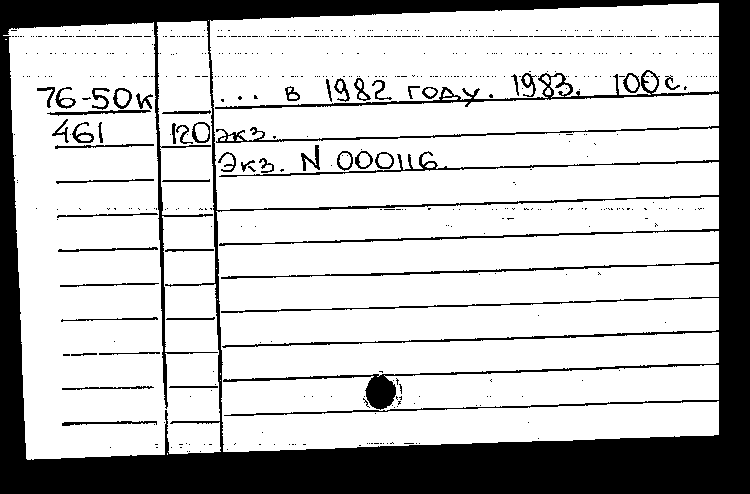 76-50к ... в 1982 году. 1983. 100 с.
461 120 экз.
Экз. N 000116.